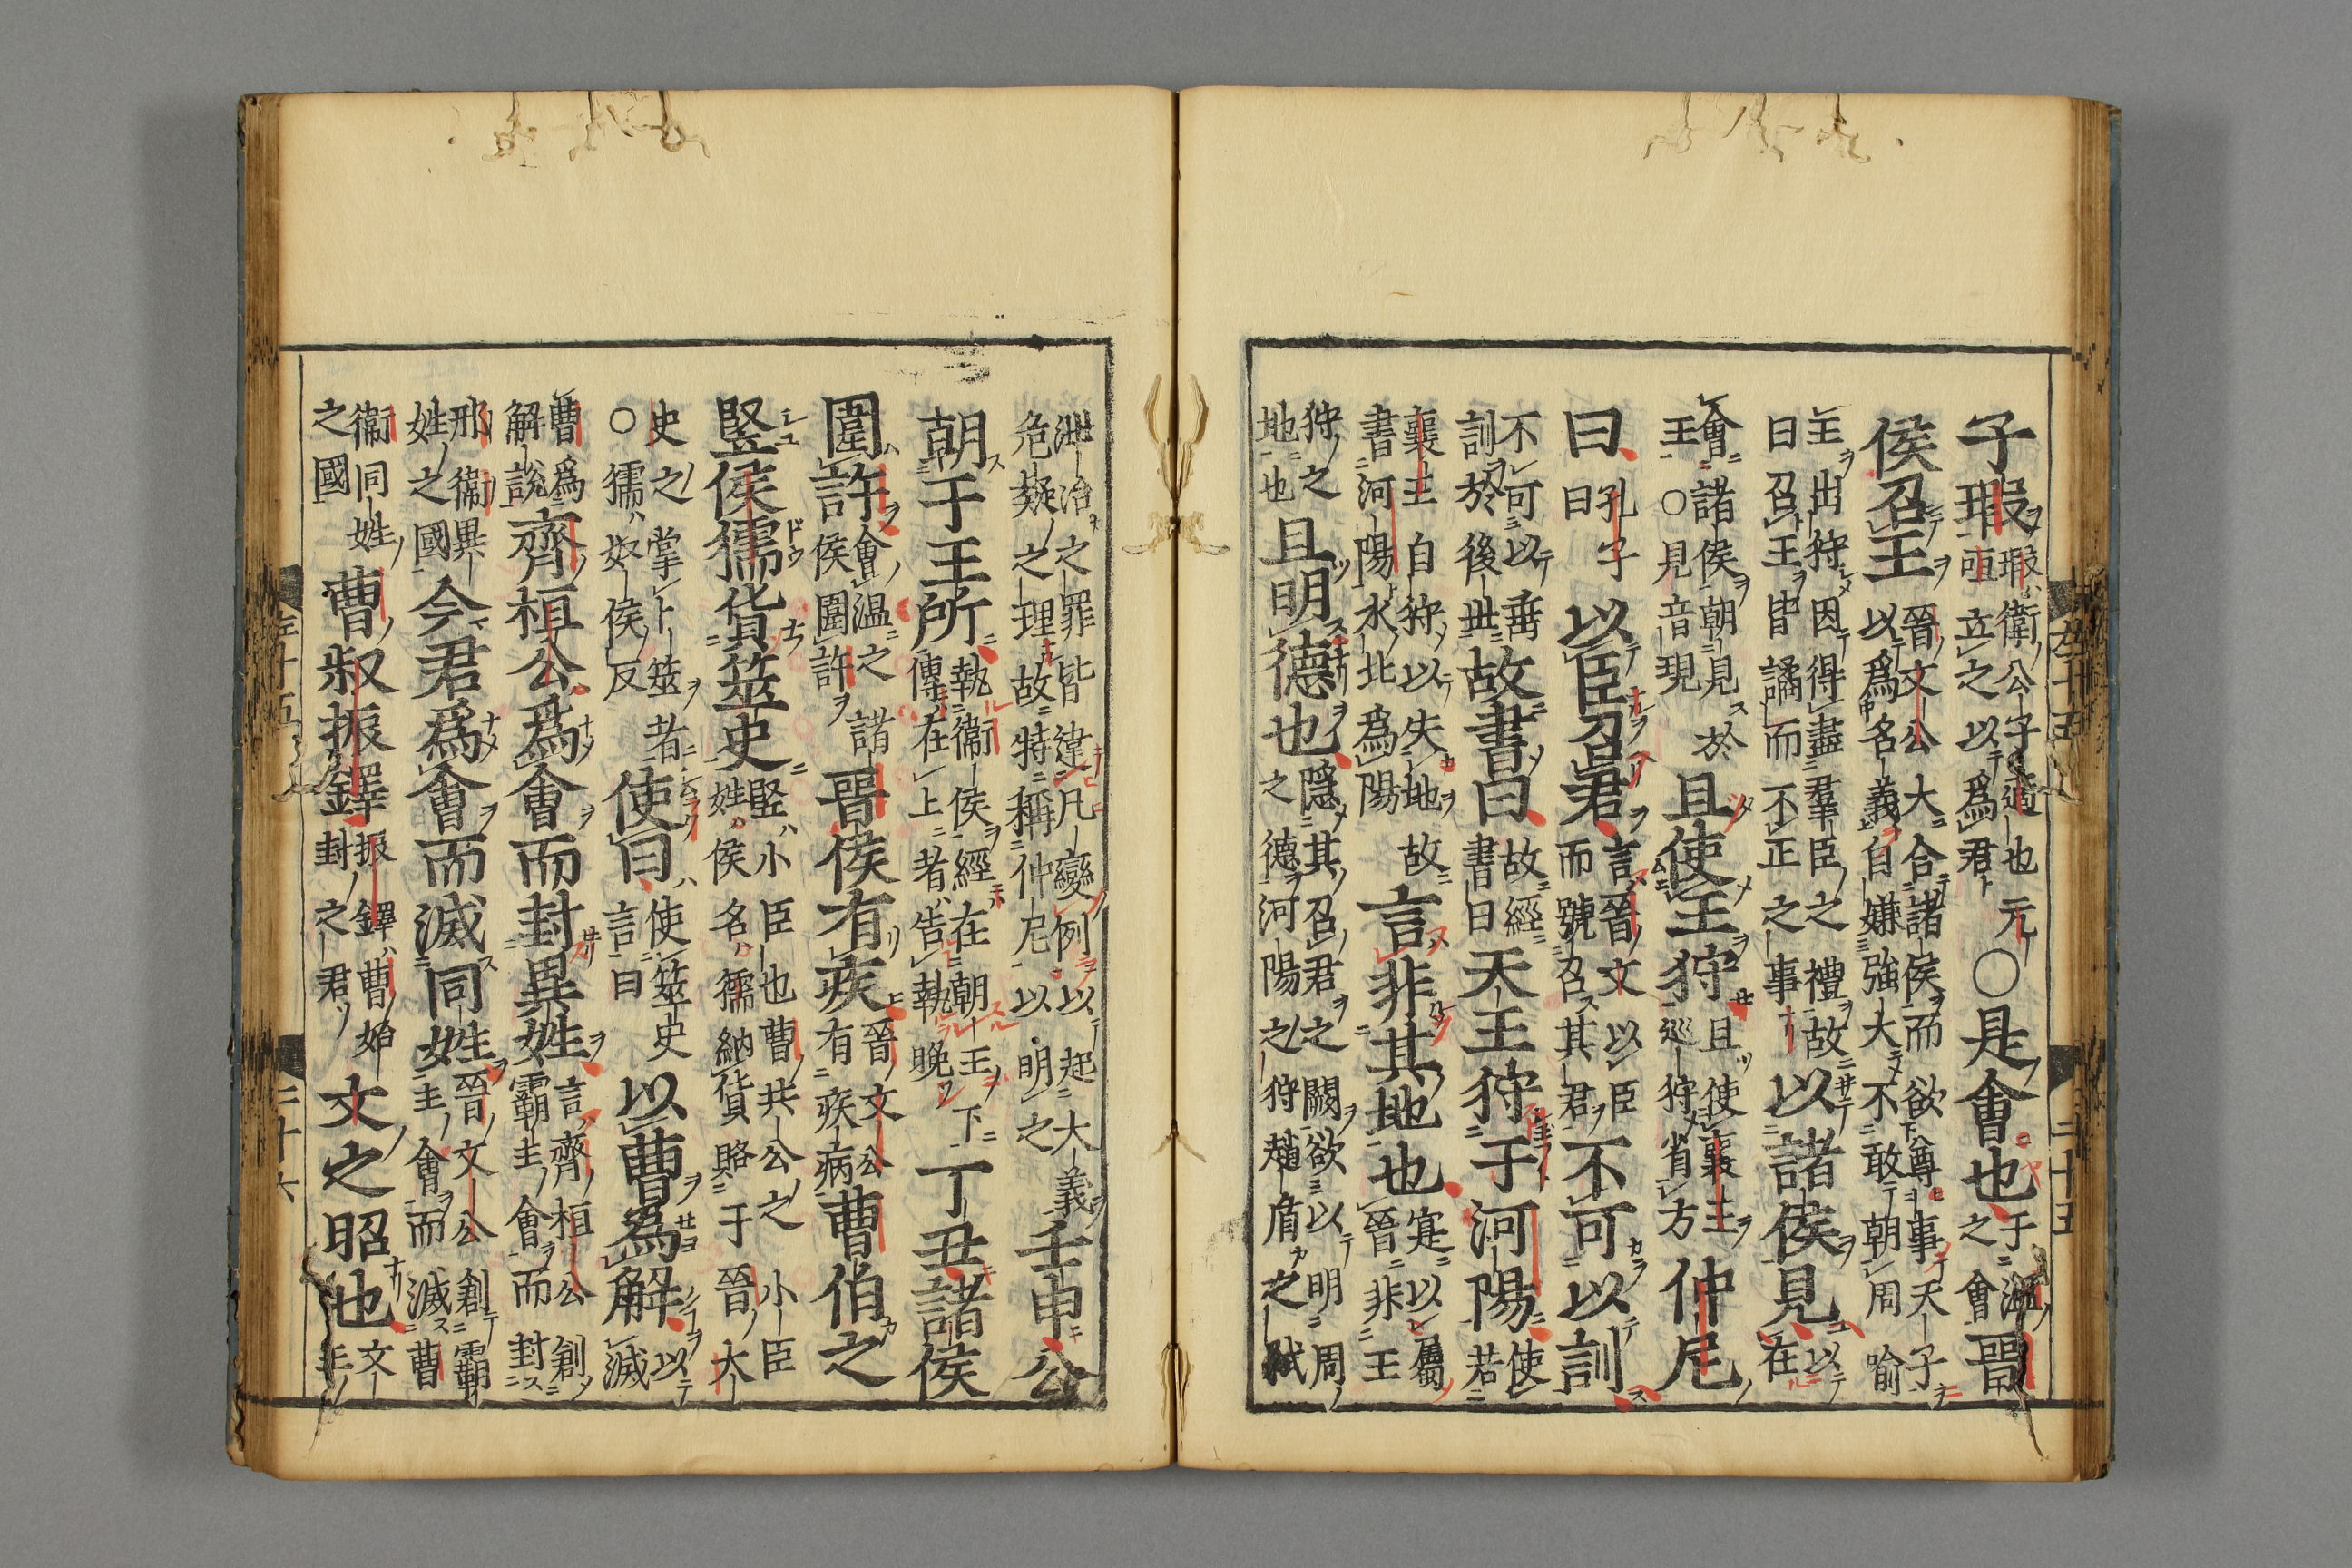 左十五 二十五
子瑕瑕衛公子適也元咺立之以爲君○是會也于溫之會晉
侯召王晉文公大合諸侯而欲尊事天子以爲名義自嫌強大不敢朝周喻
王出狩因得盡羣臣之禮故曰召王皆譎而不正之事以諸侯見以在
會諸侯朝見於王○見音現且使王狩且使襄王巡狩省方仲尼
曰孔子曰以臣召君言晉文以臣而號召其君不可以訓
不可以垂訓於後世故書曰故經書曰天王狩于河陽使若
襄王自狩以失地故書河陽水北爲陽言非其地也寔以屬晉非王
狩之地也且明德也隱其召君之闕欲以明周之德河陽之狩趙盾之弑
泄冶之罪皆違凡變例以起大義危疑之理故特稱仲尼以明之壬申公
朝于王所執衞侯經在朝王下傳在上者告執晚丁丑諸侯
圍許會溫之諸侯圍許晉侯有疾晉文公有疾病曹伯之
豎侯獳貨筮史豎小臣也曹共公之小臣姓侯名獳納貨賂于晉大
史之掌卜筮者○獳奴侯反使曰使筮史言曰以曹爲解以滅
曹爲解說齊桓公爲會而封異姓言齊桓公創霸主會而封
邢衞異姓之國今君爲會而滅同姓晉文公創霸主會而滅曹
衞同姓之國曹叔振鐸振鐸曹始封之君文之昭也文王
左十五 二十六